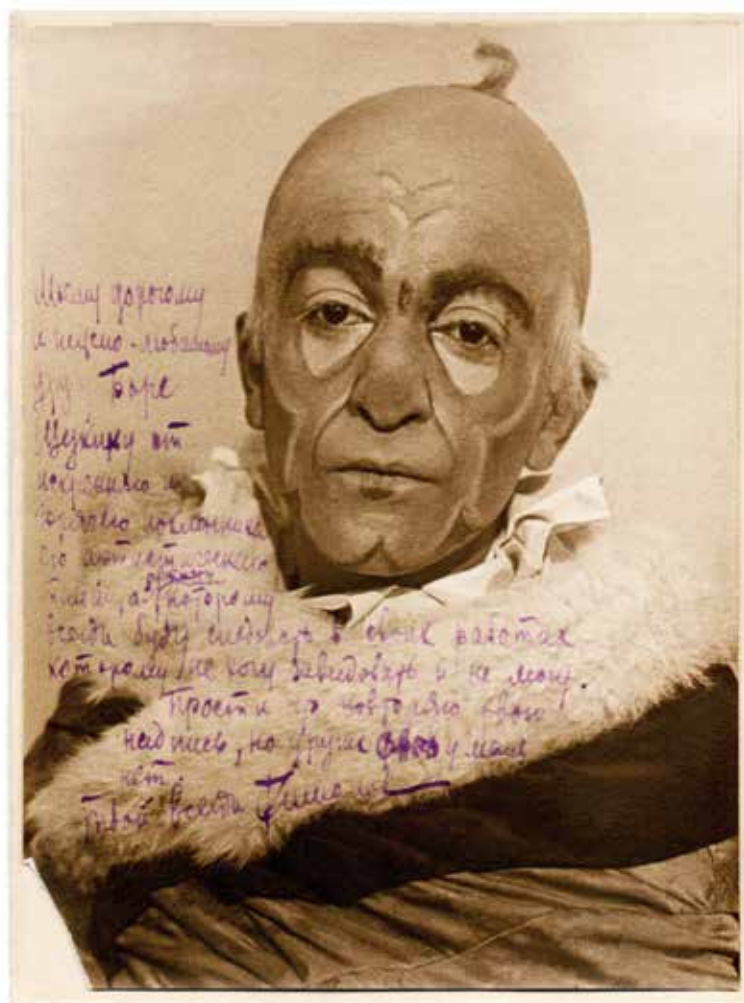 Моему дорогому
и нежно-любимому
другу Боре
от
искреннего и
горячего поклонника
его артистического
а которому
всегда буду следовать в своих работах
которому не хочу завидовать и не могу.
Прости что повторяю свою
надпись, но других слов у меня
нет.
Твой всегда